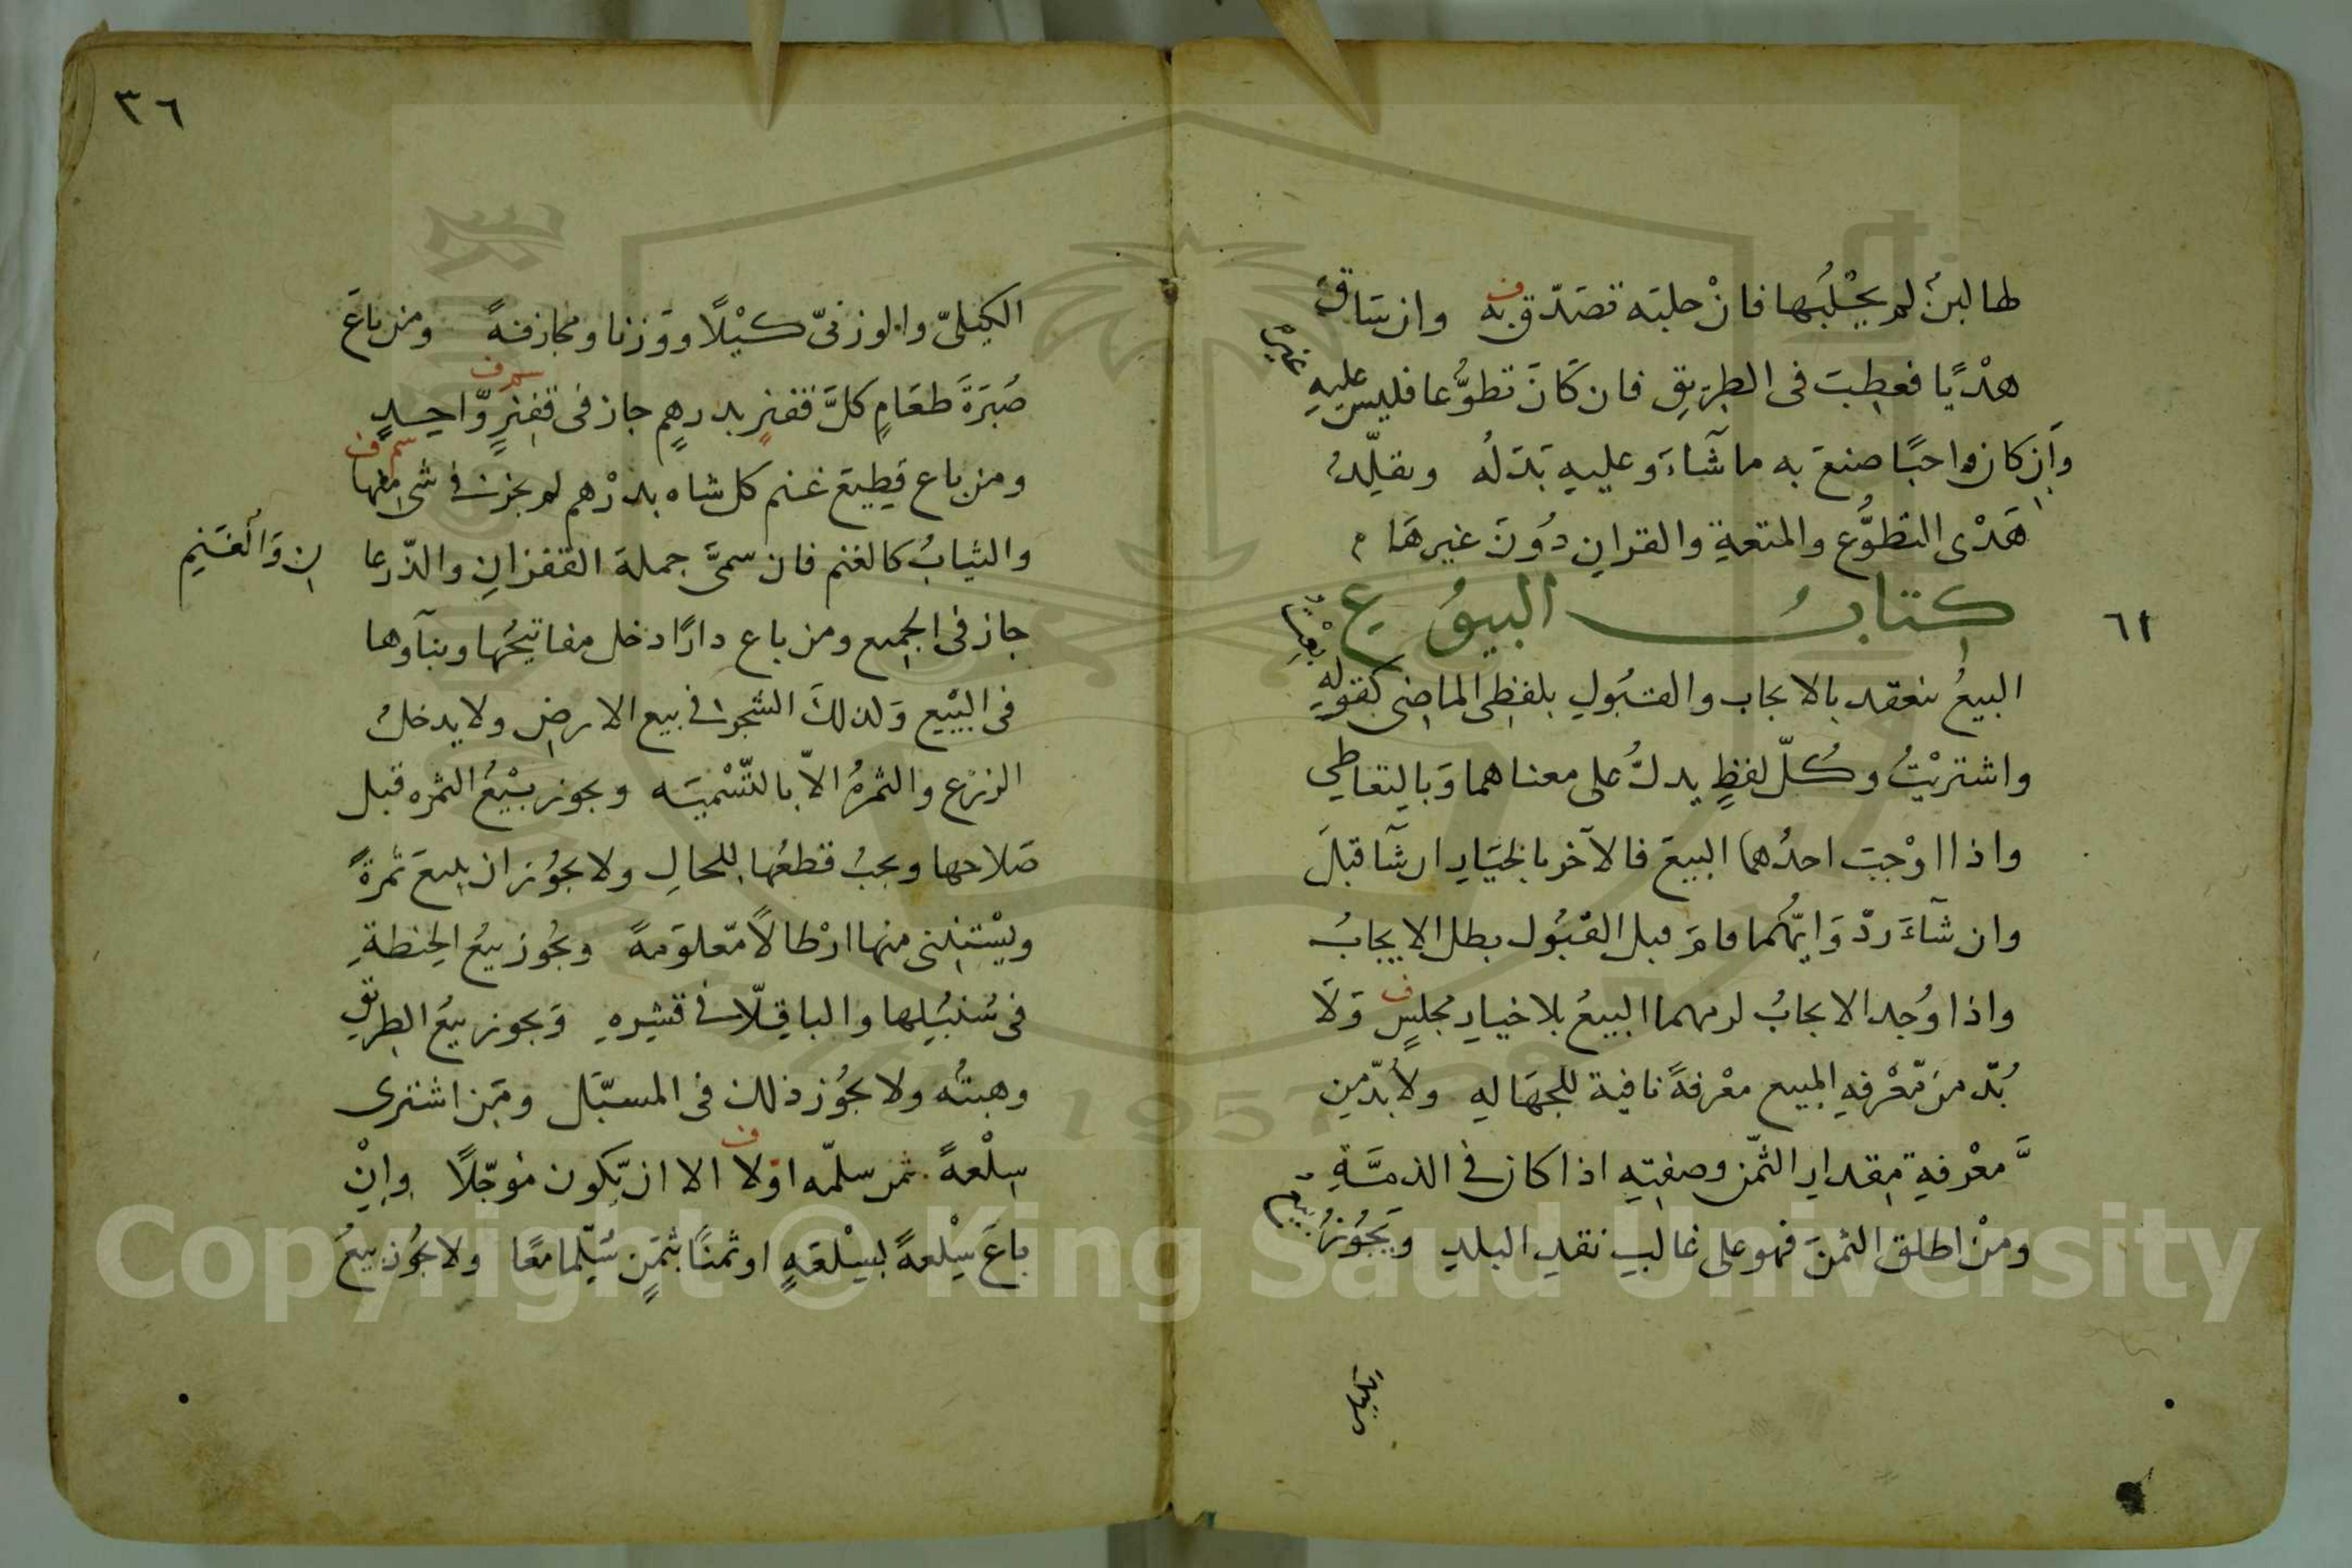 لها لبن لم يحلبها فان حلبته تصدق به وان ساق
هديا فعطبت فى الطريق فان كان تطوعا فليس عليه
وان كان واجبا صنع به ما شآء وعليه بدله ويقلد
هدى التطوع والمتعة والقران دون غيرها
٦١
كتاب البيوع
البيع ينعقد بالايجاب والقبول بلفظى الماضى كقوله
بعت
واشتريت وكل لفظ يدل على معناهما وبالتعاطي
واذا اوجب احدهما البيع فالآخر بالخيار ان شآ قبل
وان شآء رد وايهما قام قبل القبول بطل الايجاب
واذا وجد الايجاب لزمهما البيع بلا خيار مجلس ولا
بد من معرفه المبيع معرفة نافية للجهاله ولا بد من
معرفة مقدار الثمن وصفته اذا كان فى الذمة
ومن اطلق الثمن فهو على غالب نقد البلد ويجوز
بيع
٣٦
الكيلى والوزنى كيلا ووزنا ومجازفة ومن باع
صبرة طعام كل قفيز بدرهم جاز فى قفيز واحد
ومن باع قطيع غنم كل شاه بدرهم لم يجز فى شى منها
والثياب كالغنم فان سمى جملة القفزان والذرعا
ن والغنم
جاز فى الجميع ومن باع دارا دخل مفاتيحها وبنآوها
فى البيع وكذلك الشجر فى بيع الارض ولا يدخل
الزرع والثمرة الا بالتسميه ويجوز بيع الثمره قبل
صلاحها ويجب قطعها للحال ولا يجوز ان يبيع ثمرة
ويستثنى منها ارطالا معلومة ويجوز بيع الحنطة
فى سنبلها والباقلا فى قشره ويجوز بيع الطريق
وهبته ولا يجوز ذلك فى المسيل ومن اشترى
سلعة بثمن سلمه اولا الا ان يكون مؤجلا وان
باع سلعة بسلعة او ثمنا بثمن سلما معا ولا يجوز بيع
Copyright © King Saud University
1957